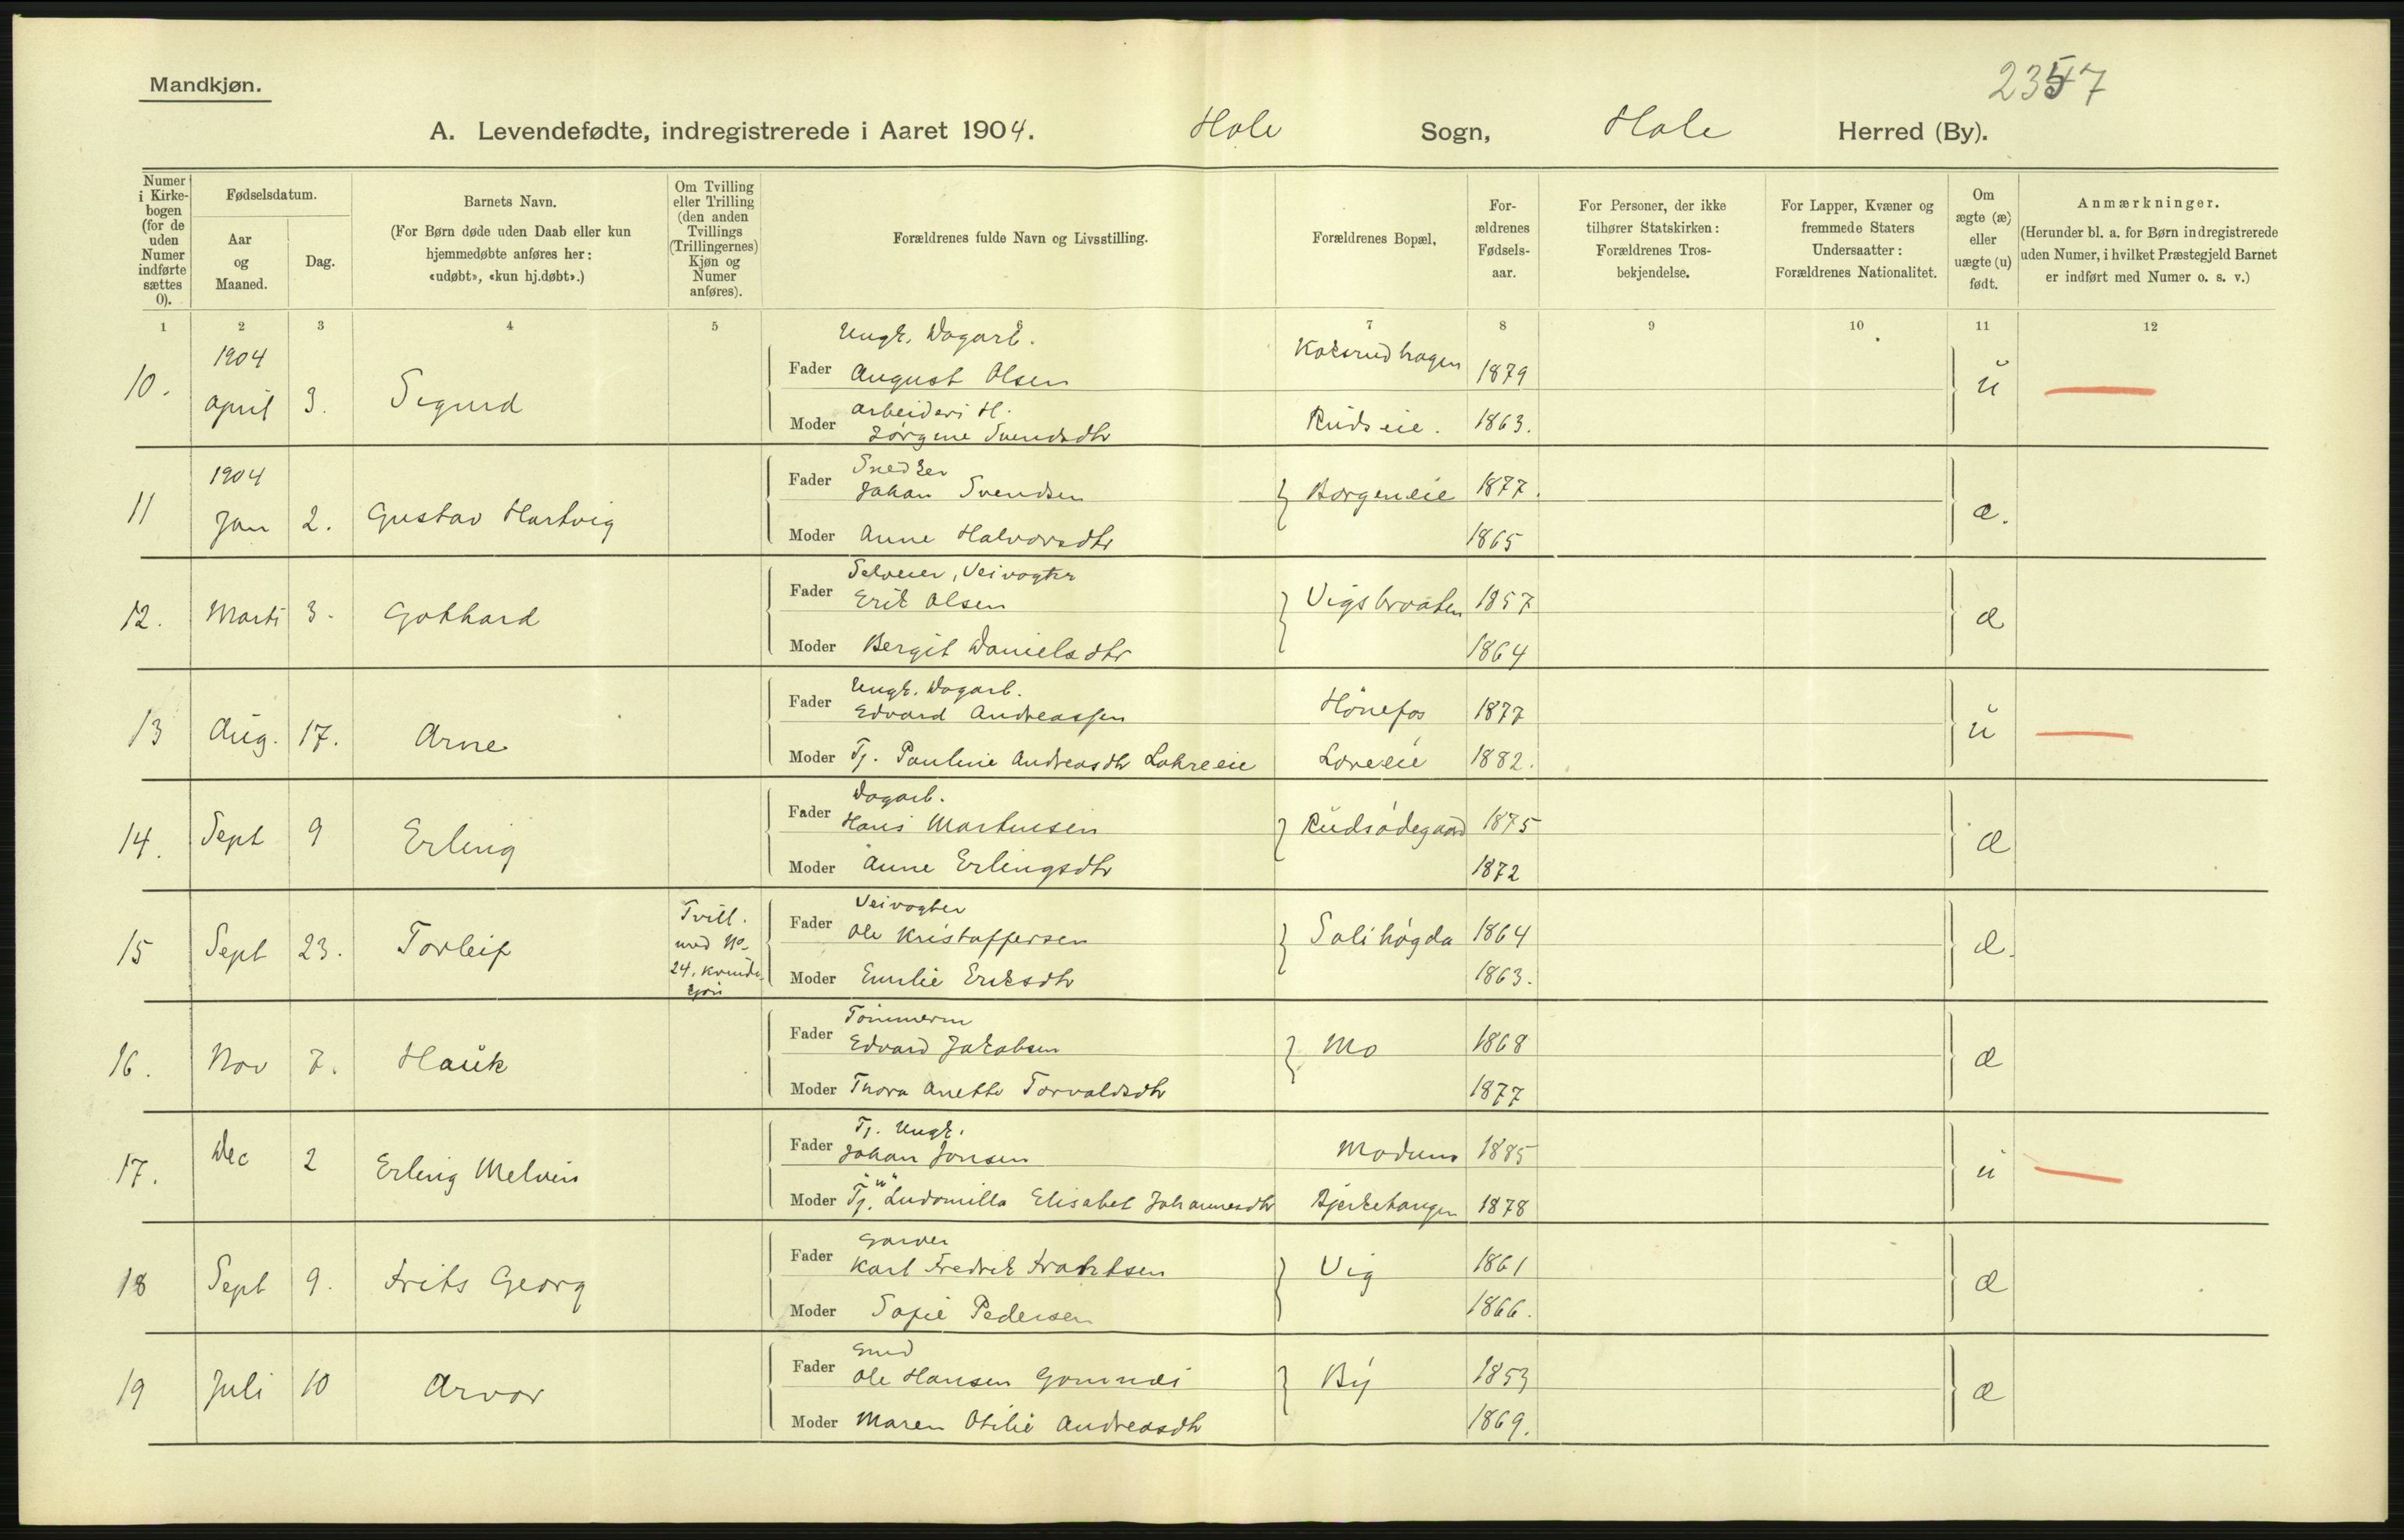 Mandkjøn.
2357
A. Levendefødte, indregistrerede i Aaret 1904. Hole Sogn, Hole Herred (By).
Numer i Kirkebogen (for de uden Numer indførte sættes 0).
Fødselsdatum.
Aar og Maaned.
Dag.
Barnets Navn.
(For Børn døde uden Daab eller kun hjemmedøbte anføres her: «udøbt», «kun hj.døbt».)
Om Tvilling eller Trilling (den anden Tvillings (Trillingernes) Kjøn og Numer anføres).
Forældrenes fulde Navn og Livsstilling.
Forældrenes Bopæl,
Forældrenes Fødselsaar.
For Personer, der ikke tilhører Statskirken: Forældrenes Trosbekjendelse.
For Lapper, Kvæner og fremmede Staters Undersaatter: Forældrenes Nationalitet.
Om ægte (æ) eller uægte (u) født.
Anmærkninger.
(Herunder bl. a. for Børn indregistrerede uden Numer, i hvilket Præstegjeld Barnet er indført med Numer o. s. v.)
1 2 3 4 5 7 8 9 10 11 12
10. 1904 april 3. Sigurd
Ungk. Dagarb.
Fader August Olsen Koksrudhagen 1879 u
arbeiders H.
Moder Jörgine Svendsdtr Rudseie. 1863.
11 1904 Jan 2. Gustav Hartvig
Snedker
Fader Johan Svendsen Borgeneie 1877. æ.
Moder Anne Halvorsdtr 1865
12. Marts 3. Gothard
Selveier, Veivogter
Fader Erik Olsen Vigsbraaten 1857 æ
Moder Bergit Danielsdtr 1864
13 Aug. 17. Arne
Ungk. Dagarb.
Fader Edvard Andreassen Hönefos 1877 u
Moder Tj. Pauline Andreasdtr Lohreeie Loreeie 1882.
14. Sept 9 Erling
Dagarb.
Fader Hans Martinsen Rudsödegaard 1875 æ
Moder Anne Erlingsdtr 1872
15 Sept 23. Torleif Tvill. med No 24. kvindekjön
Veivogter
Fader Ole Kristoffersen Solihögda 1864 æ.
Moder Emilie Eriksdtr 1863.
16. Nov 7. Hauk
Tömmerm
Fader Edvard Jakobsen Mo 1868 æ
Moder Thora Anette Torvaldsdtr 1877
17. Dec 2 Erling Melvin
Tj. Ungk.
Fader Johan Jonsen Modum 1885 u
Moder Tj. Ludomilla Elisabet Johannesdtr Bjerketangen 1878
18 Sept 9. Frits Georg
Garver
Fader Karl Fredrik Frantsen Vig 1861 æ
Moder Sofie Pedersen 1866.
19 Juli 10 Arvor
Smed
Fader Ole Hansen Gomnæs By 1853 æ
Moder Maren Otilie Andreasdtr 1869.